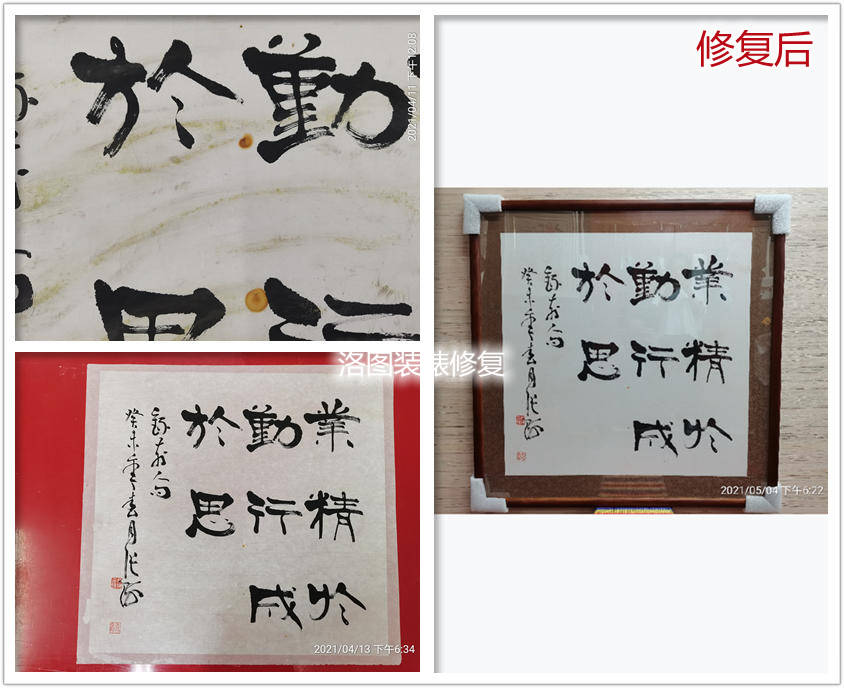 勤行
於思
2021/04/11 下午12:08
修复后
洛图装裱修复
業精於
勤行成
於思
錄古人句
癸未
2021/04/13 下午6:34
業精於
勤行成
於思
錄古人句
癸未
2021/05/04 下午6:22